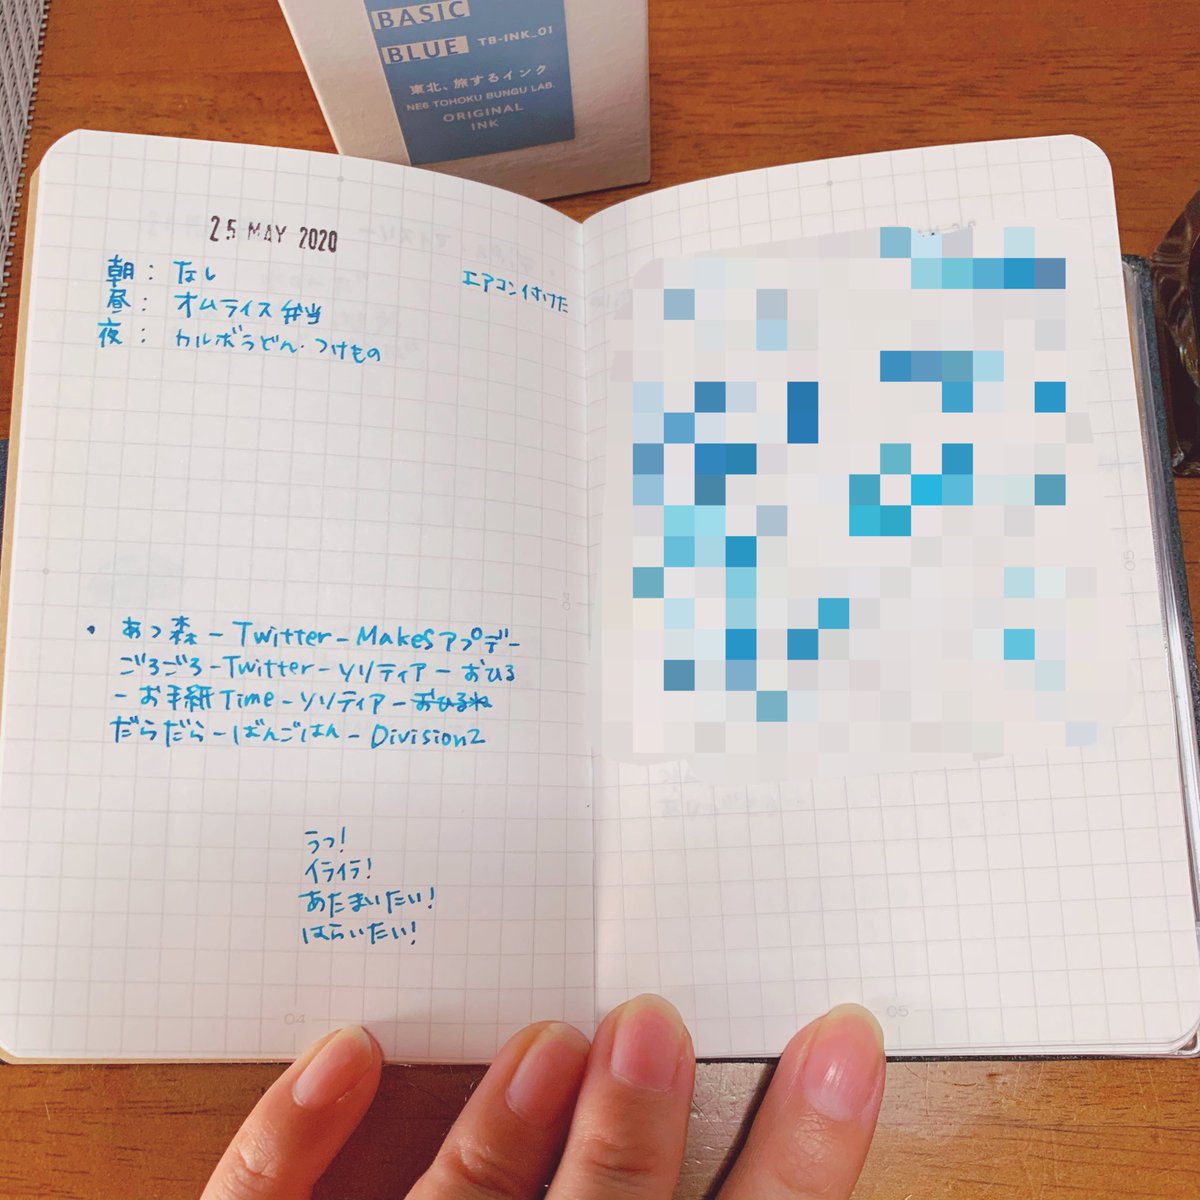 BASIC
BLUE TB-INK_01
東北、旅するインク
NE6 TOHOKU BUNGU LAB.
ORIGINAL
INK
25 MAY 2020
朝：なし
昼：オムライス弁当
夜：カルボうどん・つけもの
エアコン付けた
・あつ森-Twitter-Makesアプデ-
ごろごろ-Twitter-ソリティア-おひる
-お手紙Time-ソリティア-おひるね
だらだら-ばんごはん-Division2
うっ!
イライラ!
あたまいたい!
はらいたい!
04
05
04
05